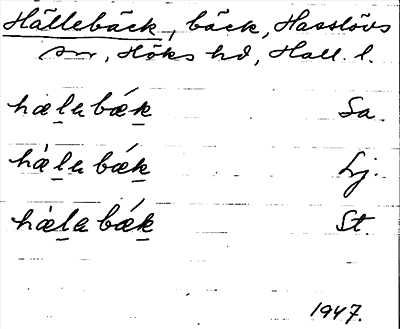 Hällebäck, bäck, Hasslövs
sn, Höks hd, Hall. l.
hælabǽk Sa.
hælabǽk Lj.
hælabǽk St.
1947.